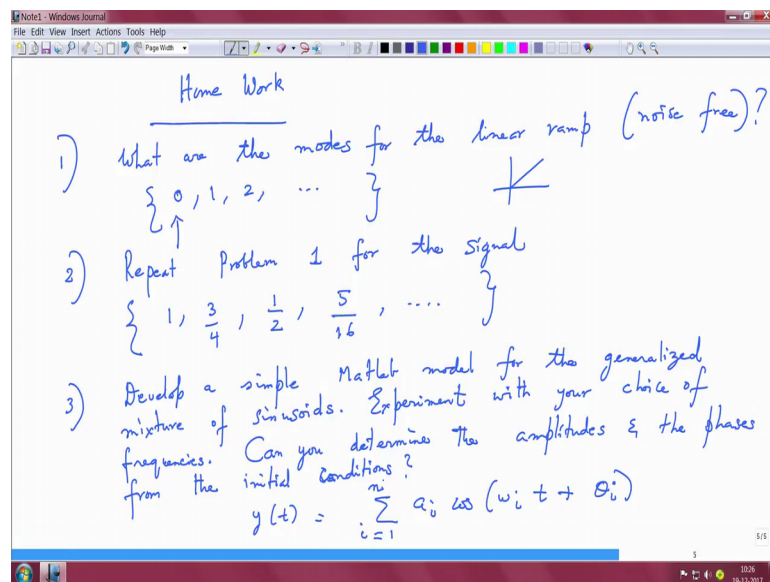 Note1 - Windows Journal
File Edit View Insert Actions Tools Help
Page Width
Home Work
1) What are the modes for the linear ramp (noise free)?
{ 0, 1, 2, ... }
↑
2) Repeat Problem 1 for the signal
{ 1, 3/4, 1/2, 5/16, .... }
3) Develop a simple Matlab model for the generalized
mixture of sinusoids. Experiment with your choice of
frequencies. Can you determine the amplitudes & the phases
from the initial conditions?
y(t) = Σ_{i=1}^{n} a_i cos (ω_i t + θ_i)
5/5
5
10:26
19-12-2017